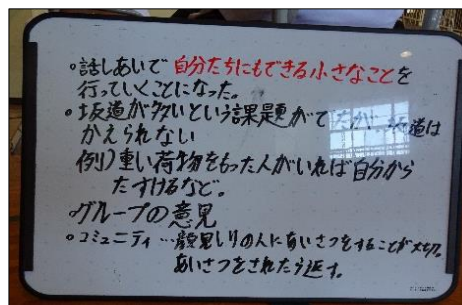 ・話しあいで自分たちにもできる小さなことを
行っていくことになった。
・坂道が多いという課題がでたが、坂道は
かえられない
例)重い荷物をもった人がいれば自分から
たすけるなど。
・グループの意見
・コミュニティ…顔見しりの人にあいさつをすることが大切。
あいさつをされたら返す。